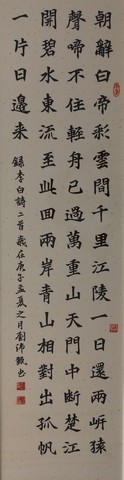 朝辭白帝彩雲間千里江陵一日還兩岍猿
聲啼不住輕舟已過萬重山天門中斷楚江
開碧水東流至此回兩岸青山相對出孤帆
一片日邊来
錄李白詩二首歲在庚子孟夏之月劉沛甄书